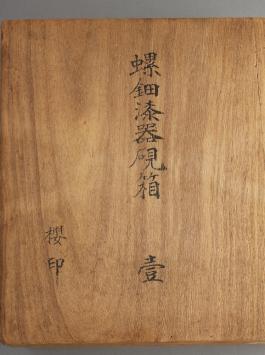 螺鈿漆器硯箱 壹
櫻印